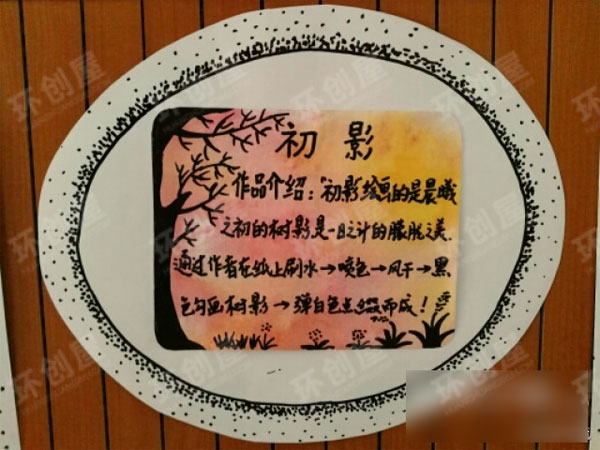 初影
作品介绍：初影绘画的是晨曦
之初的树影是一日之计的朦胧之美.
通过作者在纸上刷水→喷色→风干→黑
色勾画树影→弹白色点缀而成！
环创屋
环创屋
环创屋
环创屋
环创屋
环创屋